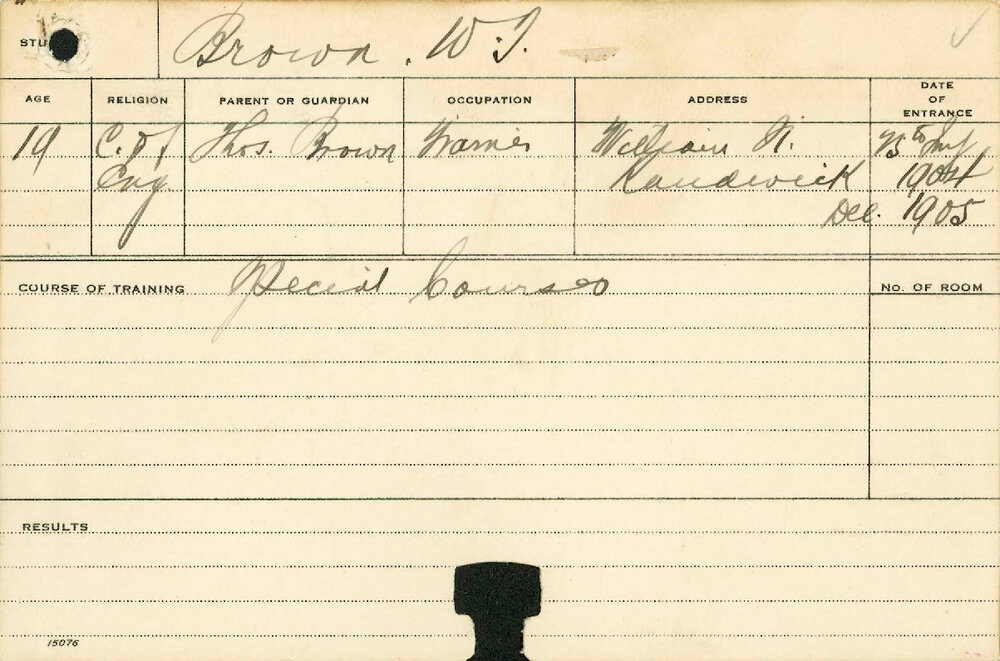 STU Brown . W.J.
AGE RELIGION PARENT OR GUARDIAN OCCUPATION ADDRESS DATE OF ENTRANCE
19 C. of Thos. Brown William St.
Eng. Randwick 1904
Dec. 1905
COURSE OF TRAINING Special Courses No. OF ROOM
RESULTS
15076